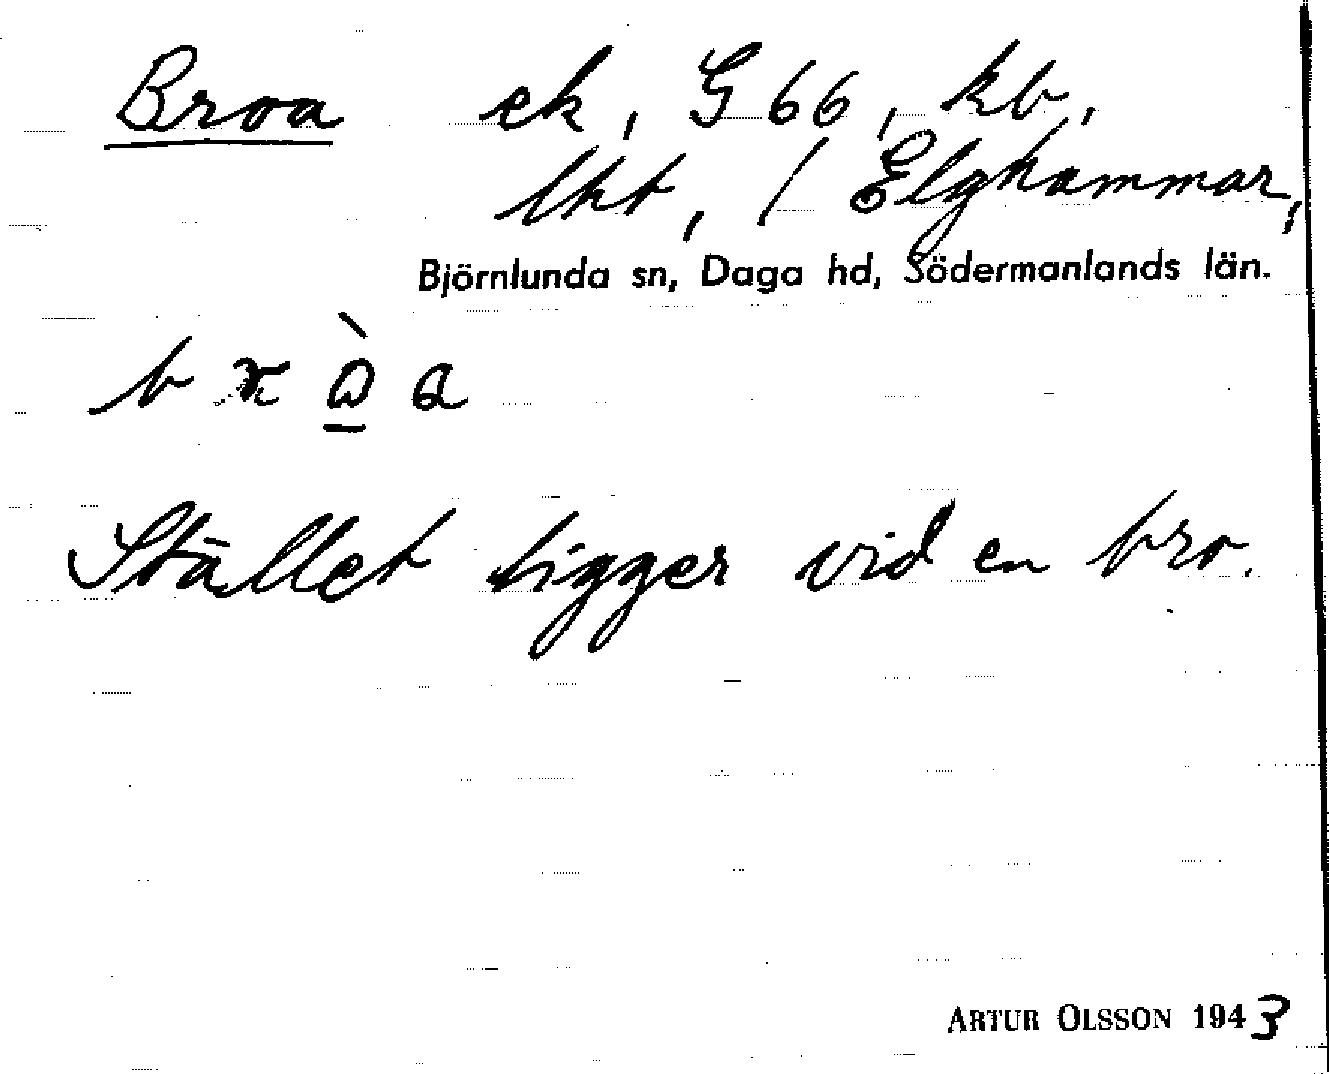 Broa ek, G 66, kb.,
lht, / Elghammar,
Björnlunda sn, Daga hd, Södermanlands län.
Stället ligger vid en bro.
ARTUR OLSSON 1943